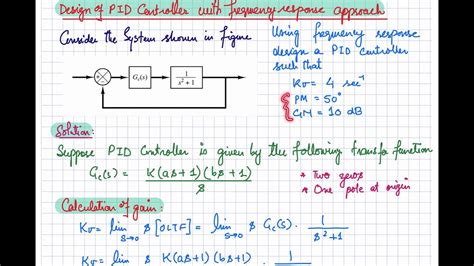 Design of PID Controller with frequency response approach
Consider the System shown in figure
Using frequency response
design a PID controller
such that
Kv = 4 sec⁻¹
PM = 50°
GM = 10 dB
Gc(s)
1
s² + 1
Solution:
Suppose PID Controller is given by the following transfer function
Gc(s) = K(as+1)(bs+1)
s
* Two zeros
* One pole at origin
Calculation of gain:
Kv = lim s [OLTF] = lim s Gc(s) . 1
s→0 s→0 s²+1
Kv = lim s K(as+1)(bs+1) . 1